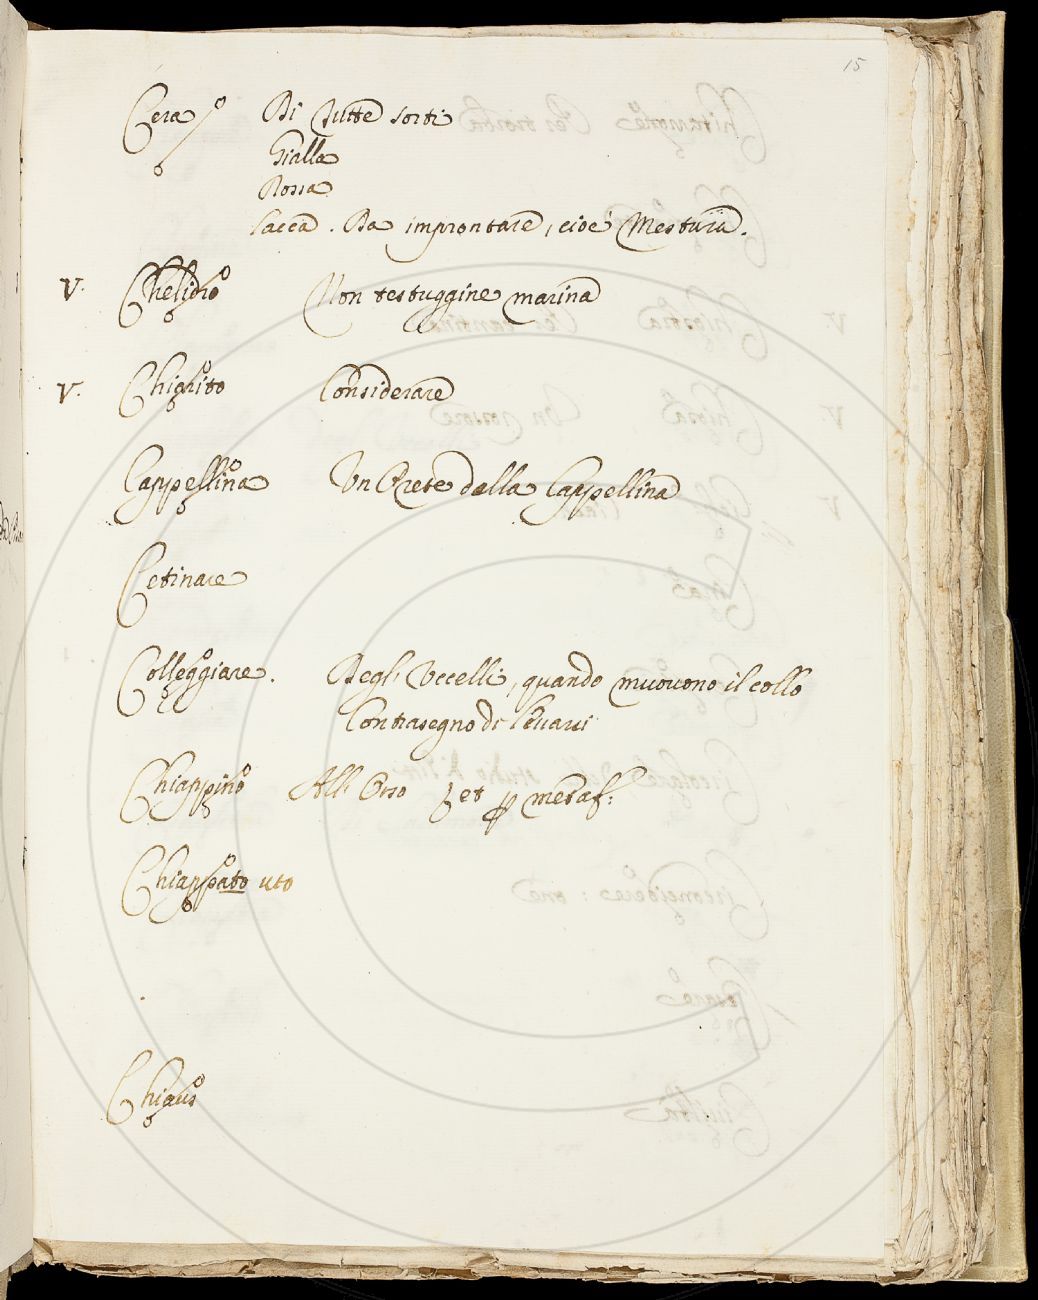 15
Cera Di tutte sorti
Gialla
Rossa
Lacca. Da improntare, cioè Mestura.
V. Chelidro Non testuggine marina
V. Chiarito Considerare
Cappellina Un Prete dalla Cappellina
Cetinare
Colleggiare. Degl' Uccelli, quando muovono il collo
Contrasegno di levarsi
Chiappino All' Orso et p metaf:
Chiappato uto
Chiaus